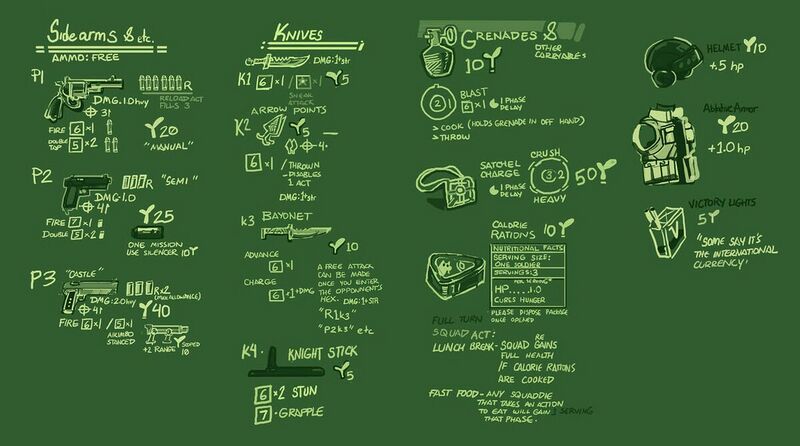 Sidearms & etc.
AMMO: FREE
P1
R
RELOAD ACT
FILLS 3
DMG: 1.0 hvy
3
FIRE 6 x1
DOUBLE TAP 5 x2
20
"MANUAL"
P2
R "SEMI"
DMG: 1.0
4
FIRE 7 x1
DOUBLE 5 x2
25
ONE MISSION
USE SILENCER 10
P3
"CASTLE"
R x2
(MAX ALLOWANCE)
DMG: 2.0 hvy
4
40
FIRE 6 x1 / 5 x1
AKIMBO
STANCED
+2 RANGE
SCOPED
10
KNIVES
DMG: 1+str
K1 6 x1 / x1
5
SNEAK
ATTACK
ARROW POINTS
K2
5
2-4
6 x1 / THROWN
-DISABLES
1 ACT
DMG: 1+str
K3 BAYONET
10
ADVANCE
6 x1
CHARGE
6 x1 +1 DMG
A FREE ATTACK
CAN BE MADE
ONCE YOU ENTER
THE OPPONENT'S
HEX. DMG: 1+STR
"R1K3"
"P2K3" etc
K4 - KNIGHT STICK
5
6 x2 STUN
7 - GRAPPLE
GRENADES &
OTHER
CARRYABLES
10
BLAST
2 1
6 x1
1 PHASE
DELAY
> COOK (HOLDS GRENADE IN OFF HAND)
> THROW
SATCHEL
CHARGE
1 PHASE
DELAY
CRUSH
3 2
HEAVY
50
CALORIE
RATIONS 10
NUTRITIONAL FACTS
SERVING SIZE:
ONE SOLDIER
SERVINGS: 3
PER SERVING
HP.....1.0
CURES HUNGER
PLEASE DISPOSE PACKAGE
ONCE OPENED
FULL TURN
SQUAD ACT:
LUNCH BREAK - SQUAD REGAINS
FULL HEALTH
IF CALORIE RATIONS
ARE COOKED
FAST FOOD - ANY SQUADDIE
THAT TAKES AN ACTION
TO EAT WILL GAIN 1 SERVING
THAT PHASE.
HELMET 10
+.5 hp
Ablative Armor
20
+1.0 hp
VICTORY LIGHTS
5
"SOME SAY IT'S
THE INTERNATIONAL
CURRENCY"